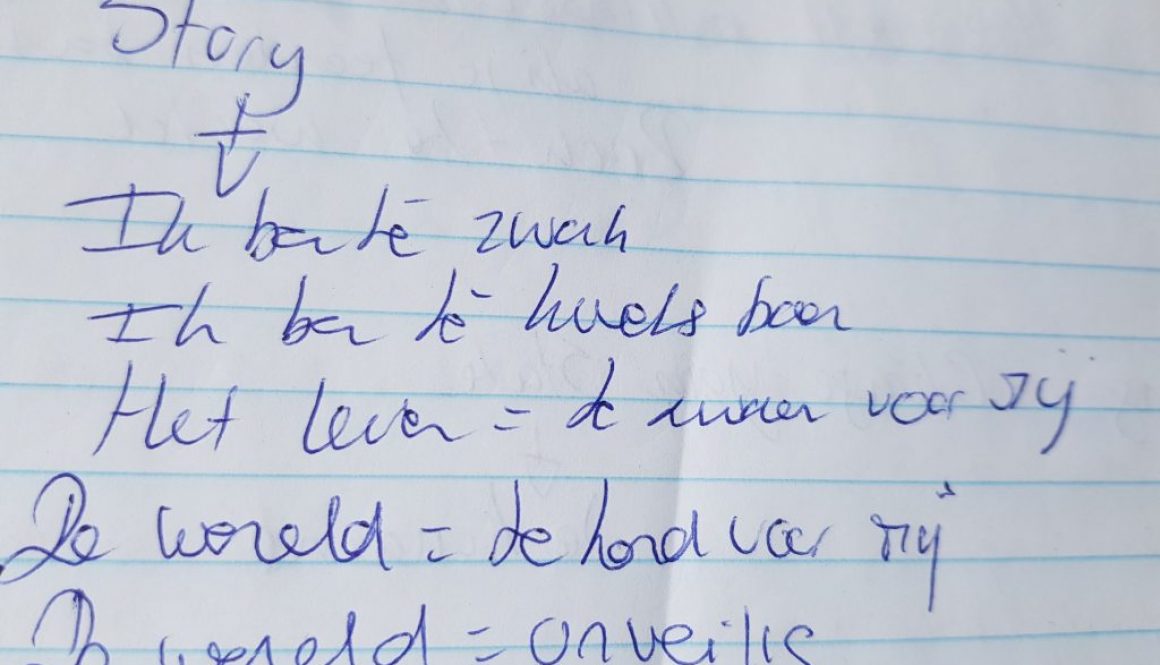 Story
Ik ben te zwak
Ik ben te kwetsbaar
Het leven = te zwaar voor mij
De wereld = te hard voor mij
De wereld = onveilig